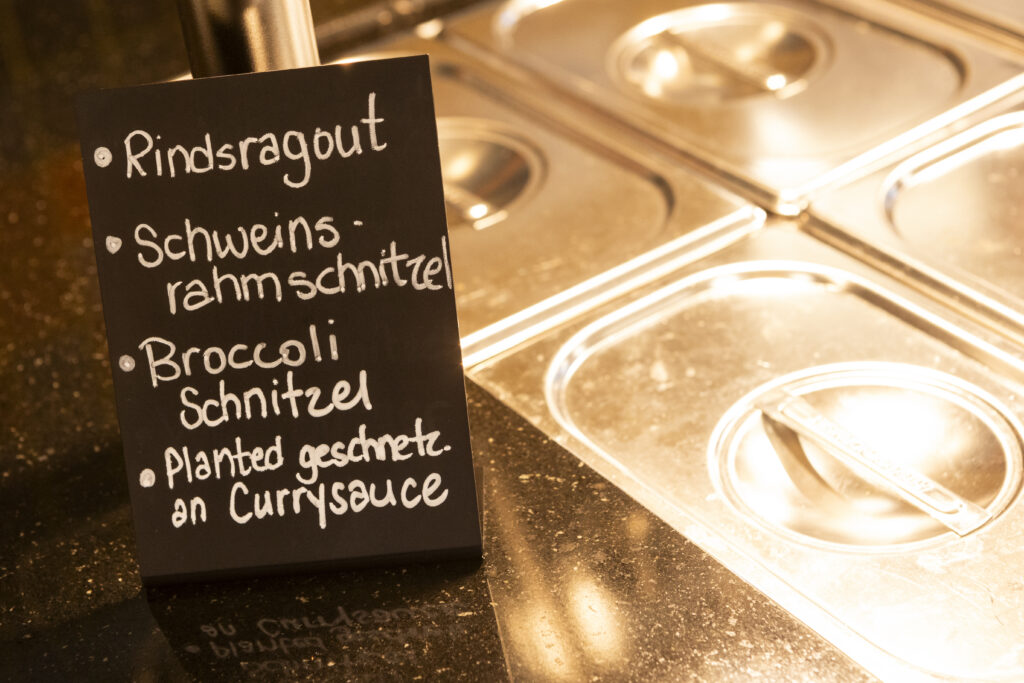 • Rindsragout
• Schweins-
rahmschnitzel
• Broccoli
Schnitzel
• Planted geschnetz.
an Currysauce